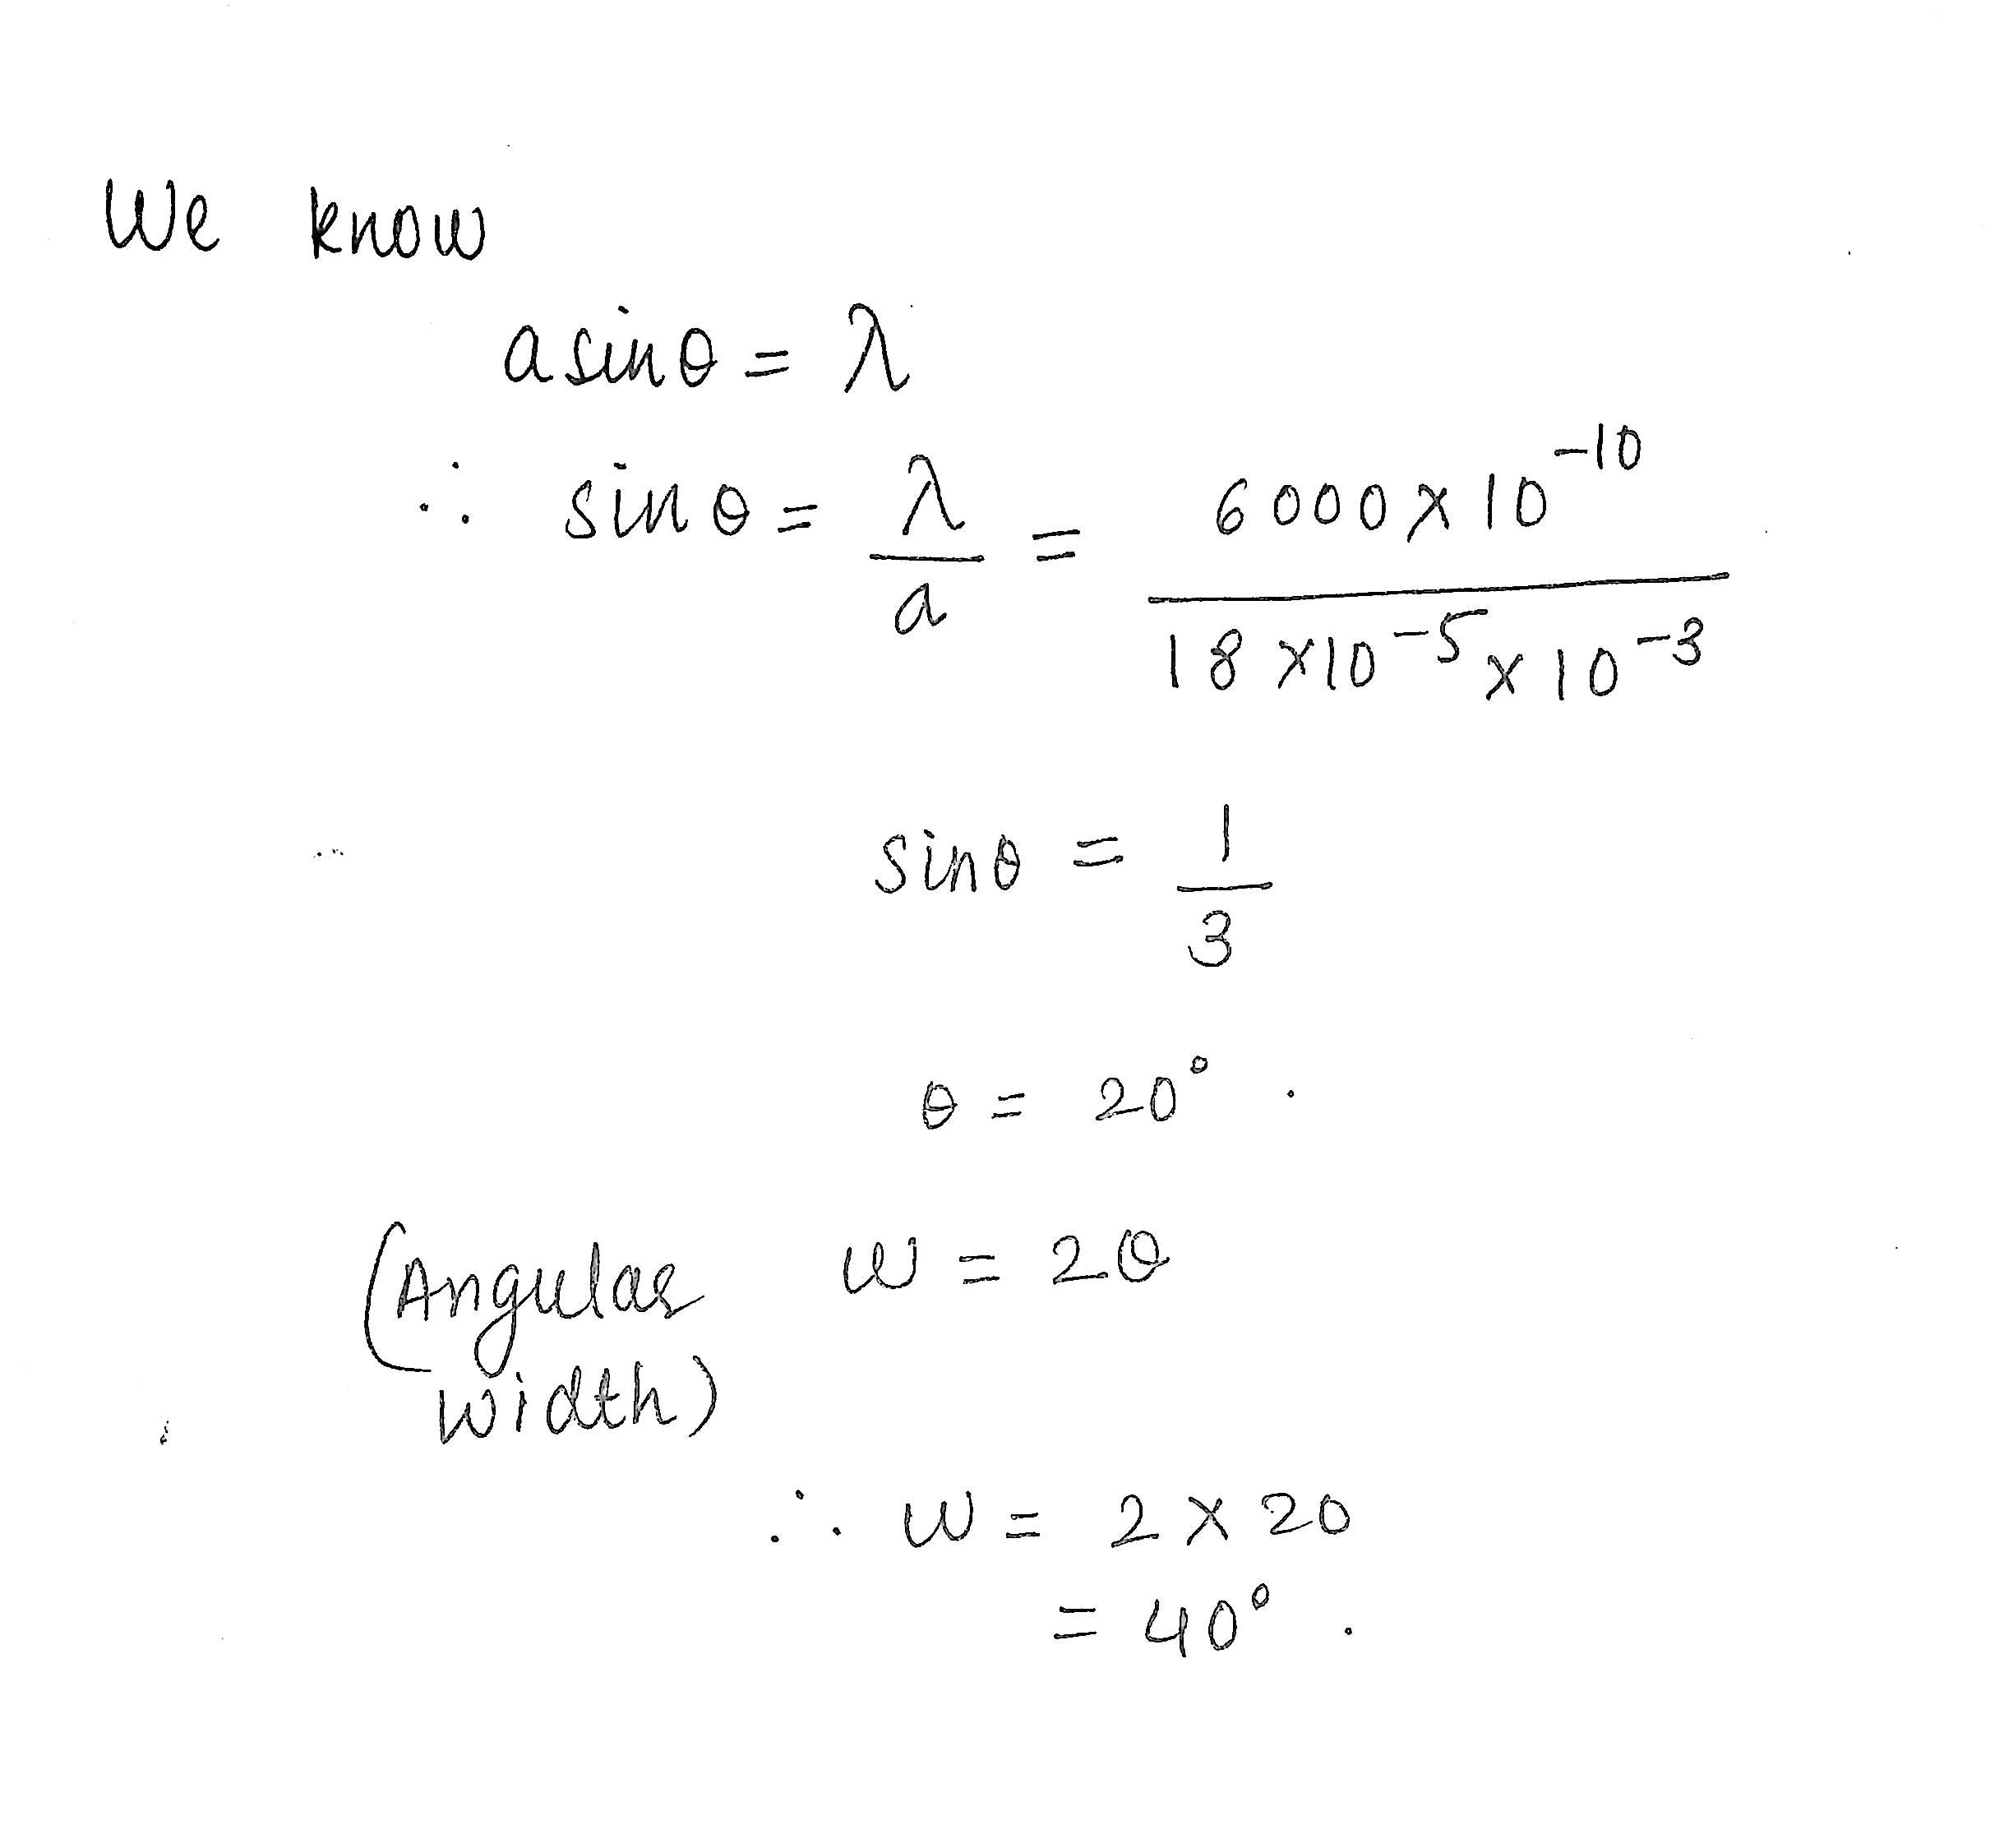 We know
a sinθ = λ
∴ sinθ = λ/a = 6000×10⁻¹⁰/18×10⁻⁵×10⁻³
sinθ = 1/3
θ = 20° .
(Angular w = 2θ
width)
∴ w = 2×20
= 40° .